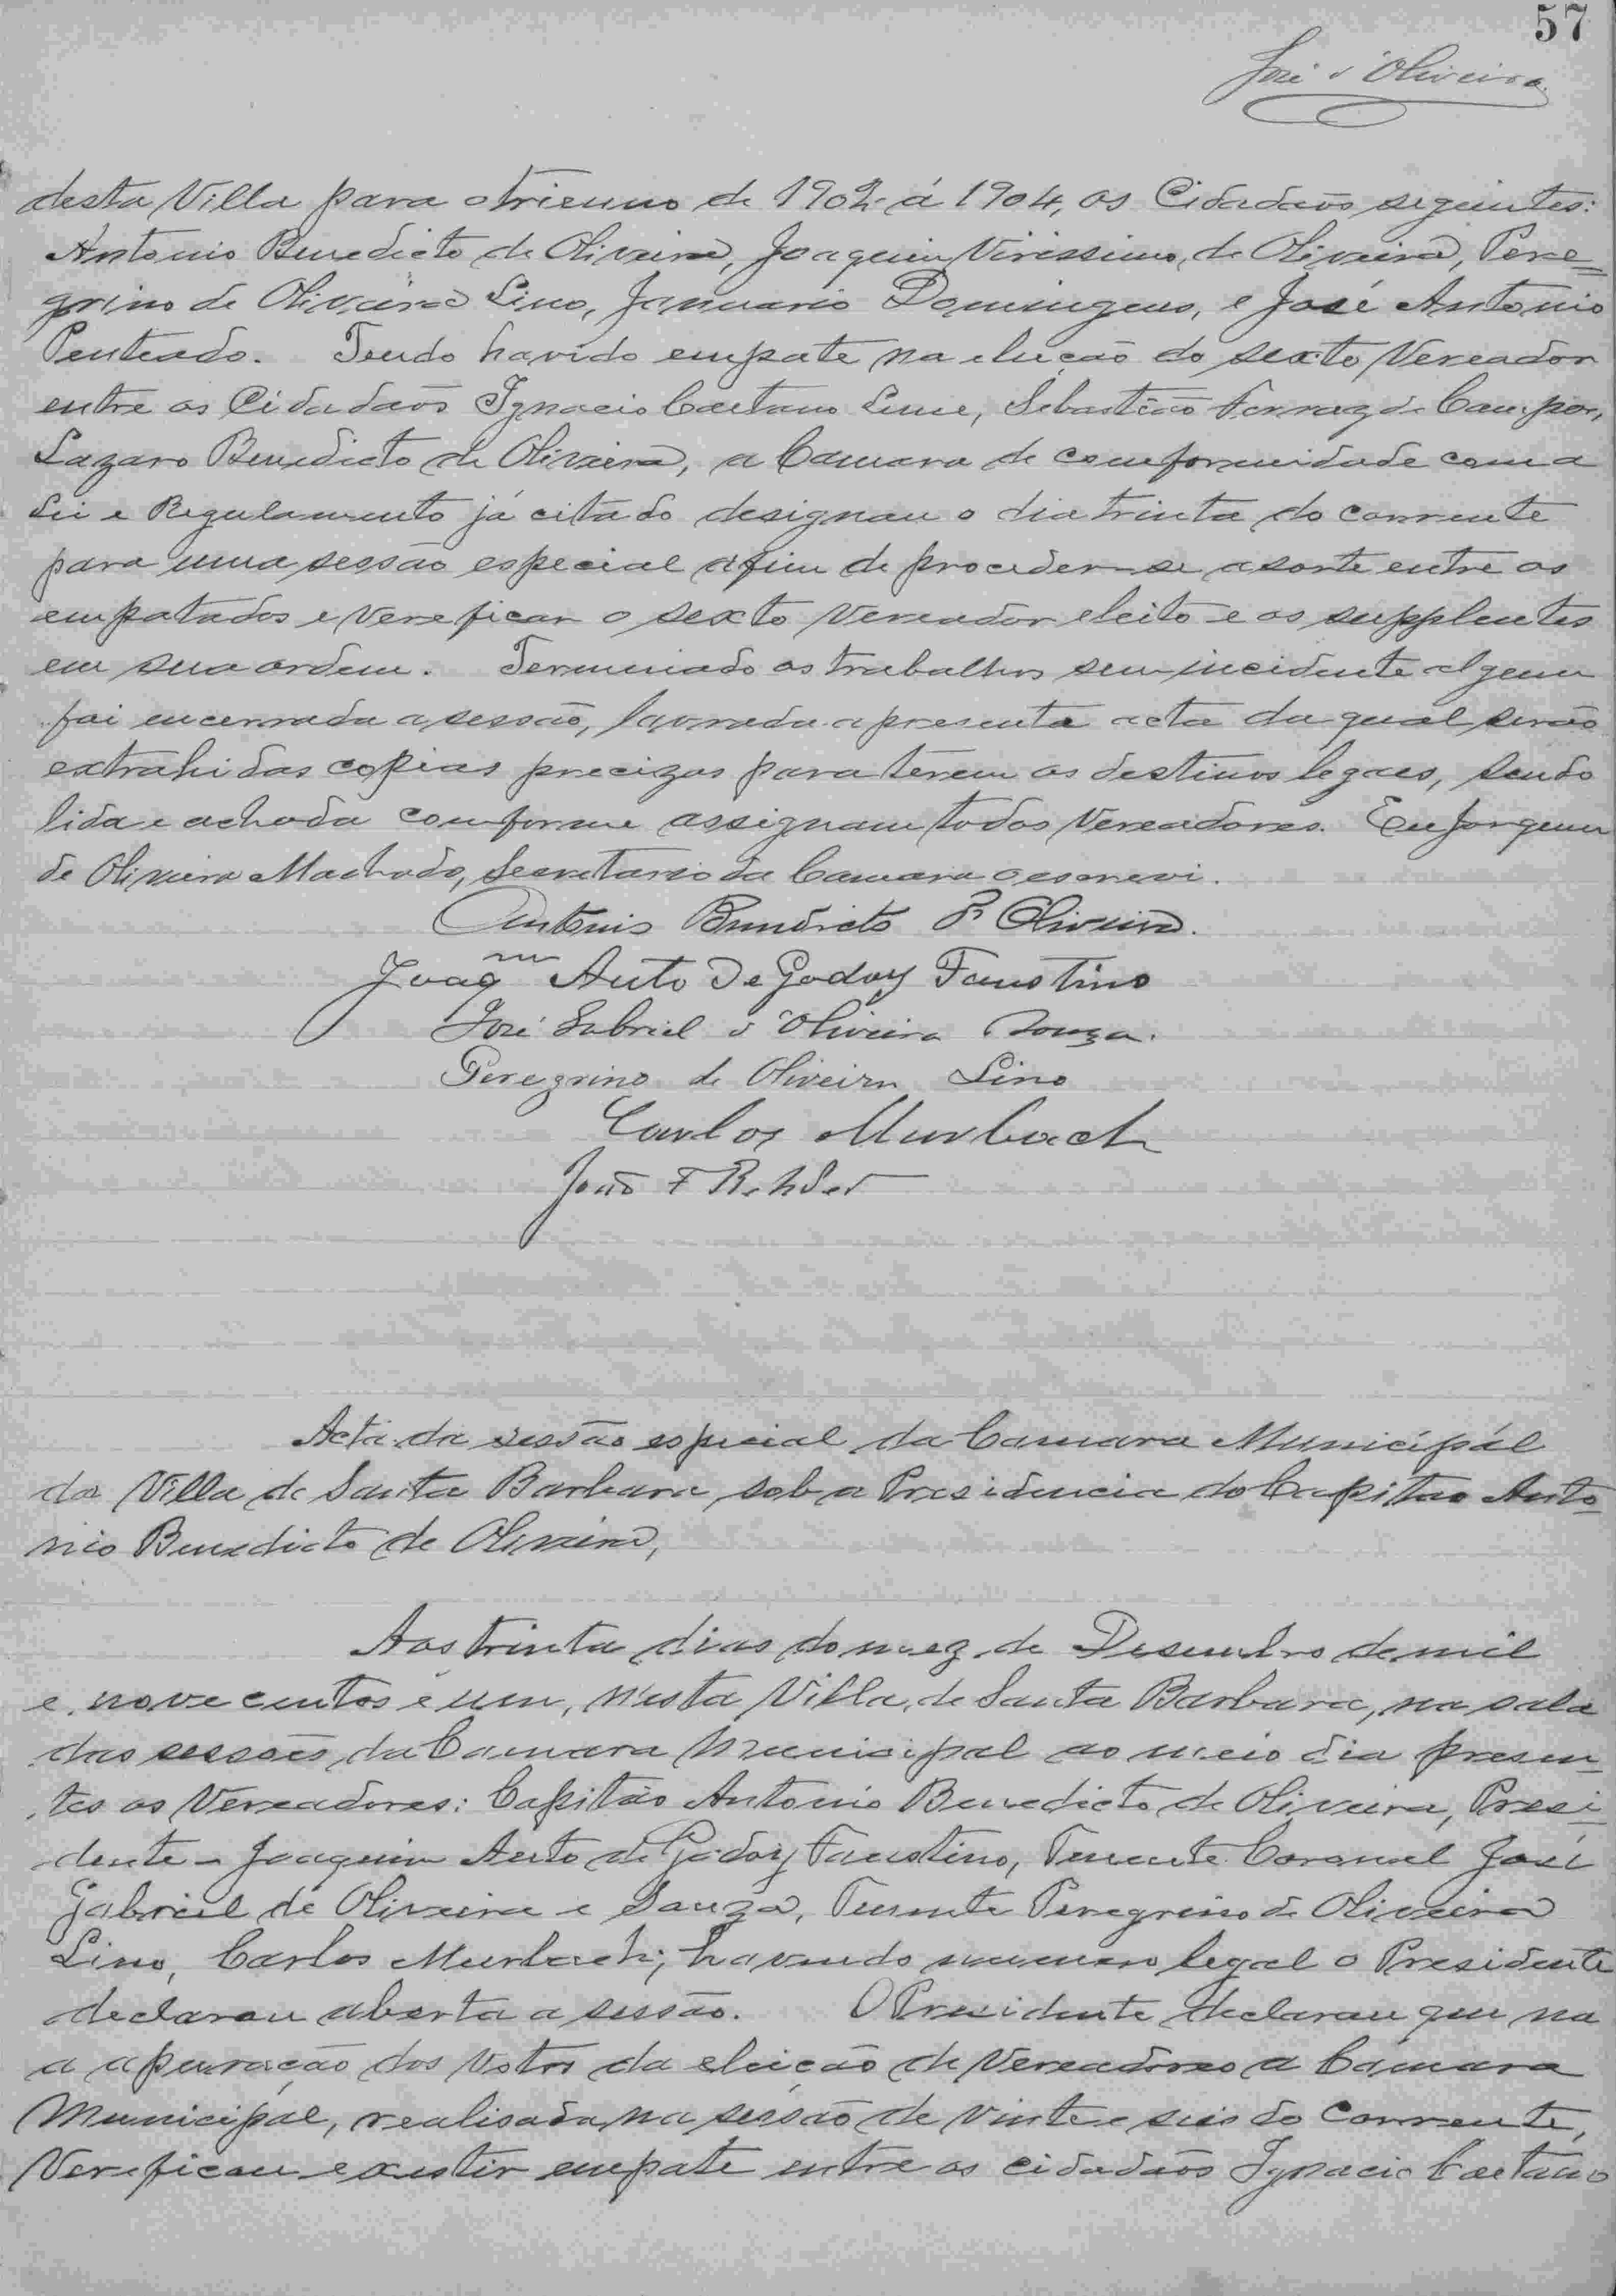 57
José d'Oliveira
desta Villa para o trienno de 1902 á 1904, os Cidadaõs seguintes:
Antonio Benedicto de Oliveira, Joaquim Virissimo de Oliveira, Pere-
grino de Oliveira Lino, Januario Domingues, e José Antonio
Penteado. Tendo havido empate na eleição do sexto Vereador
entre os Cidadaõs Ignacio Caetano Leme, Sebastião Ferraz de Campos,
Lazaro Benedicto de Oliveira, a Camara de comformidade com a
Lei e Regulamento já citado designou o dia trinta do corrente
para uma sessão especial afim de proceder-se a sorte entre os
empatados e vereficar o sexto Vereador eleito e os supplentes
em sua ordem. Terminado os trabalhos sem incidente algum
foi encerrada a sessão, lavrada a presente acta da qual serão
extrahidas copias precizas para terem os destinos legaes, sendo
lida e achada comforme assignam todos Vereadores. Eu Joaquim
de Oliveira Machado, Secretario da Camara o escrevi.
Antonio Benedicto d'Oliveira.
Joaqm Anto De Godoy Faustino
José Gabriel d'Oliveira Souza.
Peregrino de Oliveira Lino
Carlos Murbach
João F Rehder
Acta da sessão especial da Camara Municipál
da Villa de Santa Barbara, sob a Presidencia do Capitão Anto-
nio Benedicto de Oliveira,
Aos trinta dias do mez de Desembro de mil
e nove centos e um, n'esta Villa de Santa Barbara, na sala
das sessoẽs da Camara Municipal ao meio dia presen-
tes os Vereadores: Capitão Antonio Benedicto de Oliveira, Presi-
dente - Joaquim Anto de Godoy Faustino, Tenente Coronel José
Gabriel de Oliveira e Souza, Tenente Peregrino de Oliveira
Lino, Carlos Murbach; havendo numero legal o Presidente
declarou aberta a sessão. O Presidente declarou que na
a apuração dos votos da eleição de Vereadores a Camara
Municipál, realisada na sessão de vinte e seis do corrente,
Verificou existir empate entre os cidadaõs Ignacio Caetano